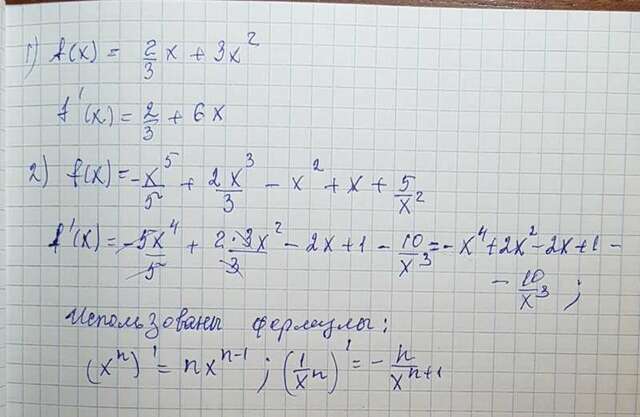 1) f(x) = 2/3 x + 3x²
f'(x) = 2/3 + 6x
2) f(x) = -x⁵/5 + 2x³/3 - x² + x + 5/x²
f'(x) = -5x⁴/5 + 2·3x²/3 - 2x + 1 - 10/x³ = -x⁴ + 2x² - 2x + 1 -
- 10/x³ ;
Использованы формулы:
(xⁿ)' = nxⁿ⁻¹ ; (1/xⁿ)' = - n/xⁿ⁺¹